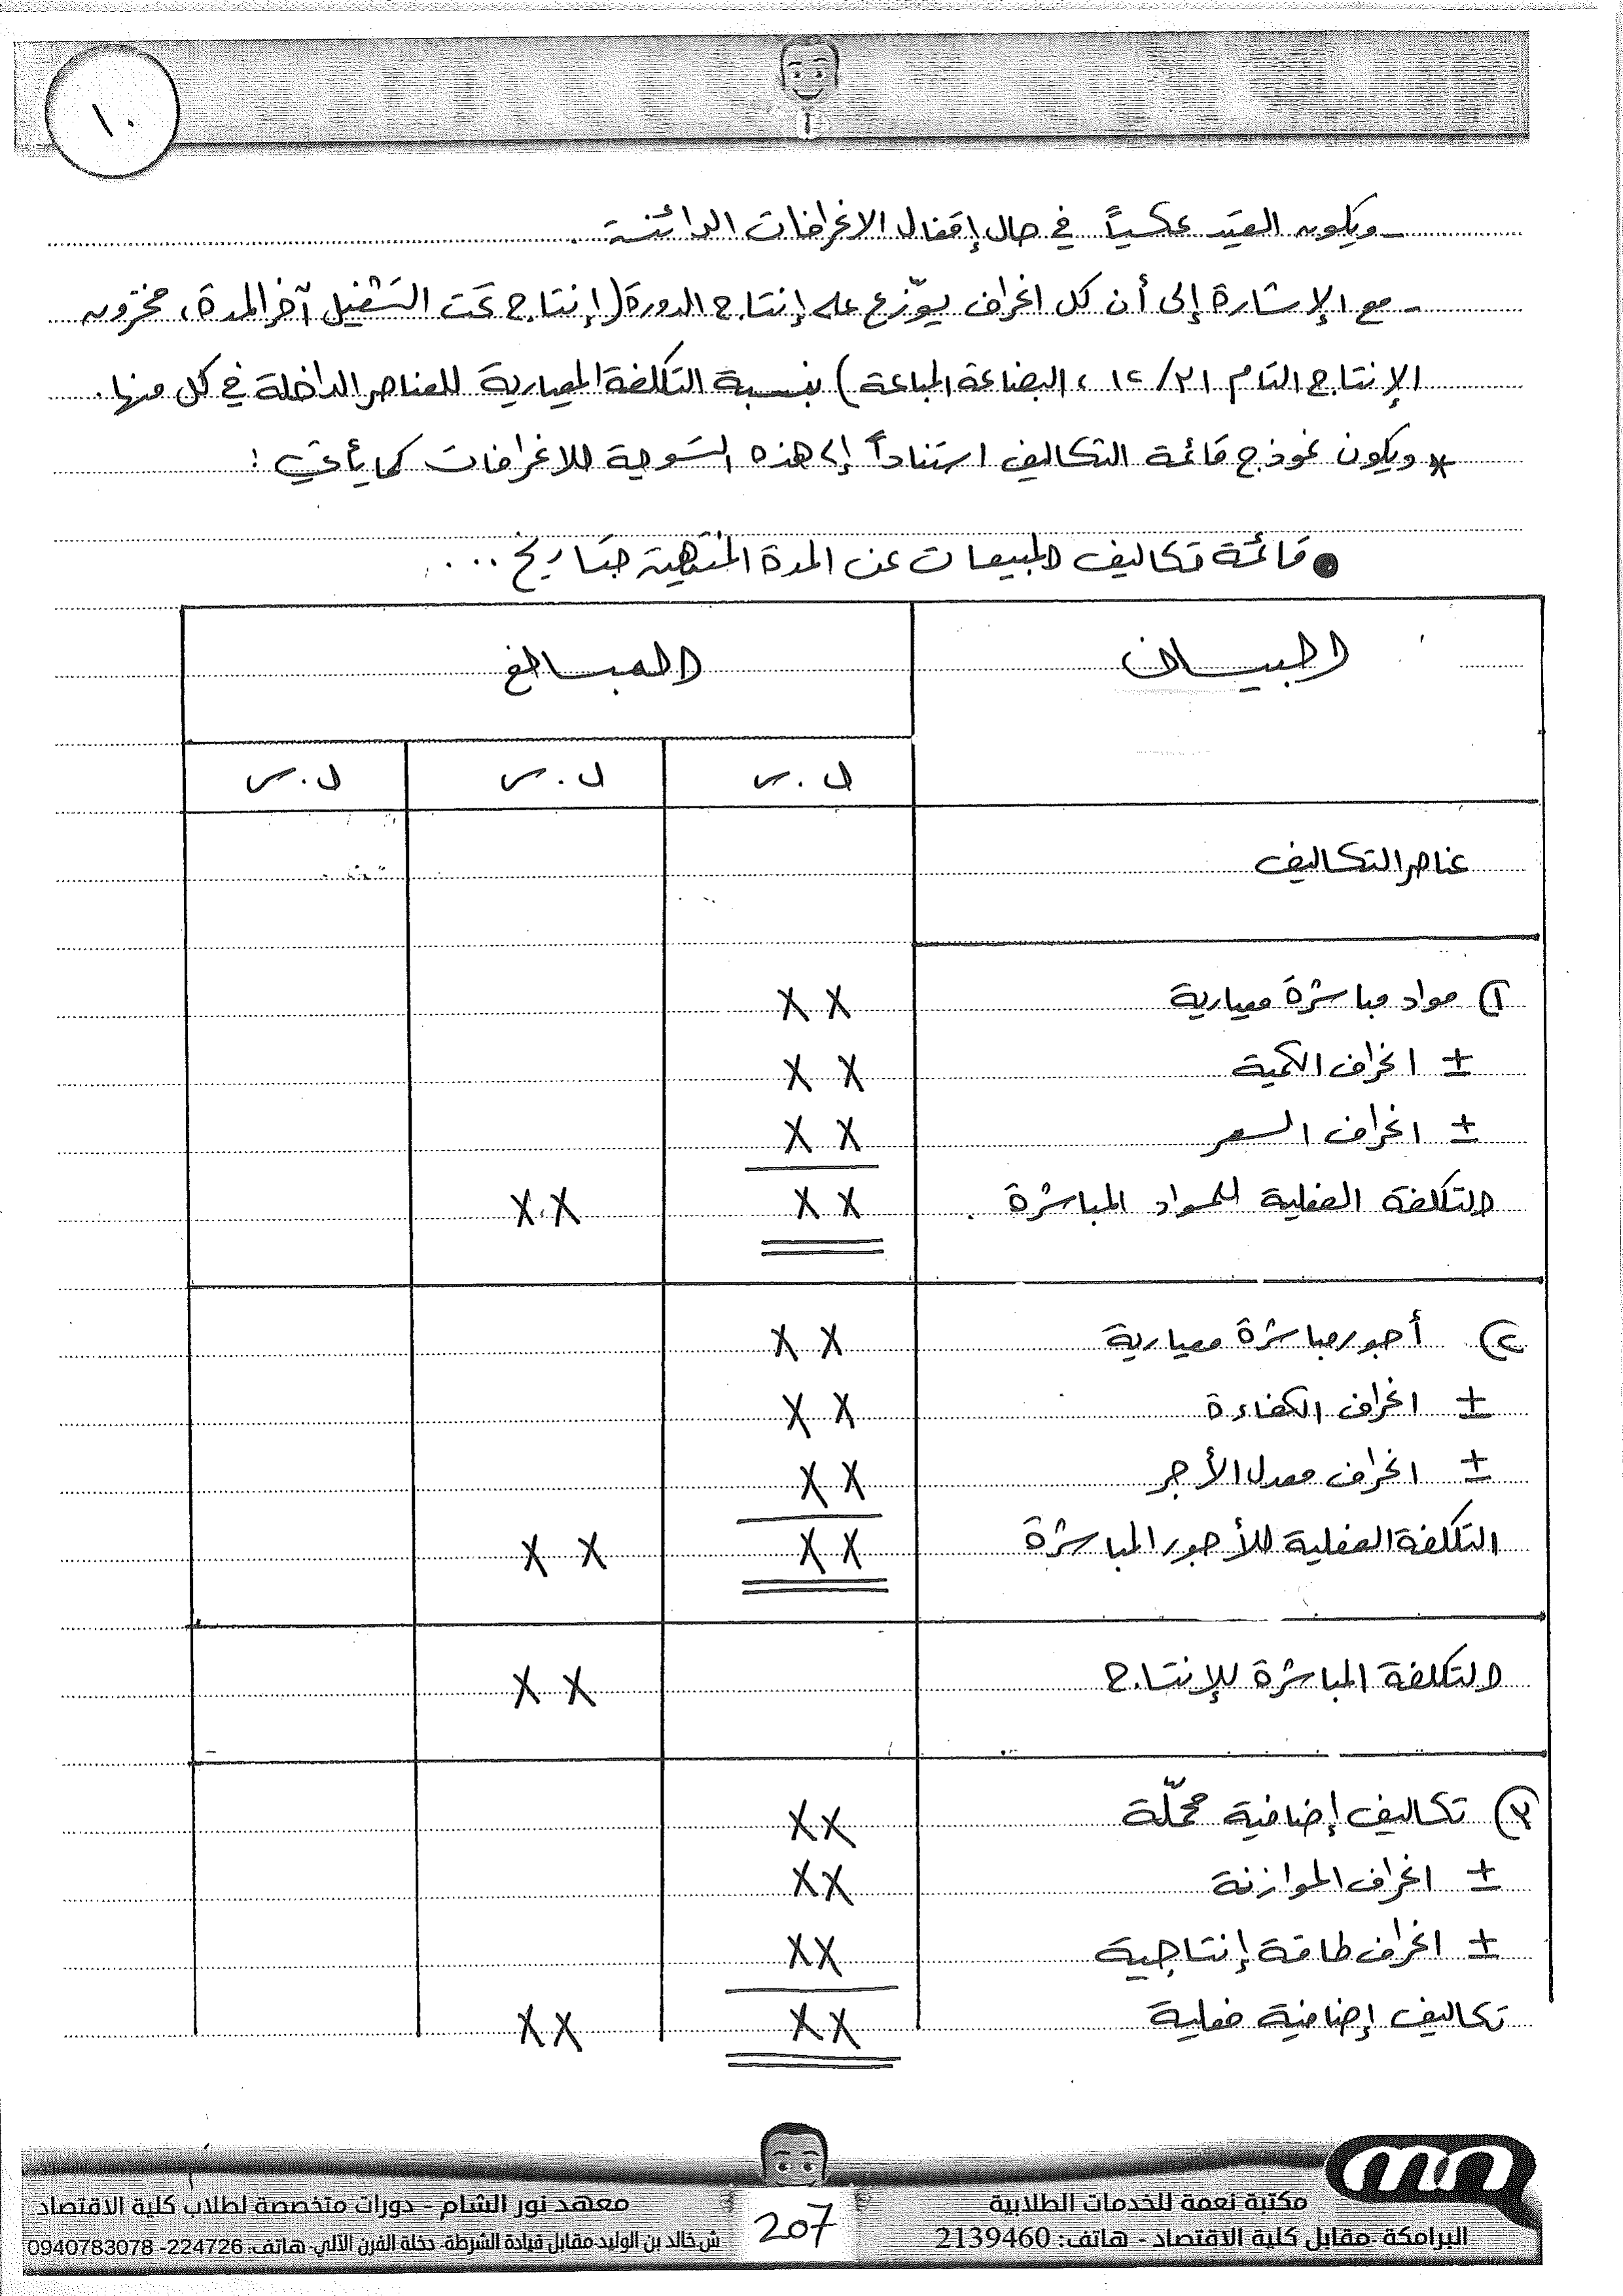 ١٠
- ويكون القيد عكسياً في حال إقفال الانحرافات الدائنة.
- مع الإشارة إلى أن كل انحراف يوّزع على إنتاج الدورة (إنتاج تحت التشغيل آخر المدة، مخزون
الإنتاج التام ١٢/٣١، البضاعة المباعة) بنسبة التكلفة المعيارية للعناصر الداخلة في كل منها.
* ويكون نموذج قائمة التكاليف استناداً إلى هذه التسوية للانحرافات كما يأتي:
● قائمة تكاليف المبيعات عن المدة المنتهية بتاريخ ...
البيان المبالغ
ل.س ل.س ل.س
عناصر التكاليف
١) مواد مباشرة معيارية XX
± انحراف الكمية XX
± انحراف السعر XX
التكلفة الفعلية للمواد المباشرة. XX XX
٢) أجور مباشرة معيارية XX
± انحراف الكفاءة XX
± انحراف معدل الأجر XX
التكلفة الفعلية للأجور المباشرة XX XX
التكلفة المباشرة للإنتاج XX
٣) تكاليف إضافية محمّلة XX
± انحراف الموازنة XX
± انحراف طاقة إنتاجية XX
تكاليف إضافية فعلية XX XX
مكتبة نعمة للخدمات الطلابية
البرامكة -مقابل كلية الاقتصاد - هاتف: 2139460
207
معهد نور الشام - دورات متخصصة لطلاب كلية الاقتصاد
ش.خالد بن الوليد-مقابل قيادة الشرطة- دخلة الفرن الآلي- هاتف: 224726- 0940783078